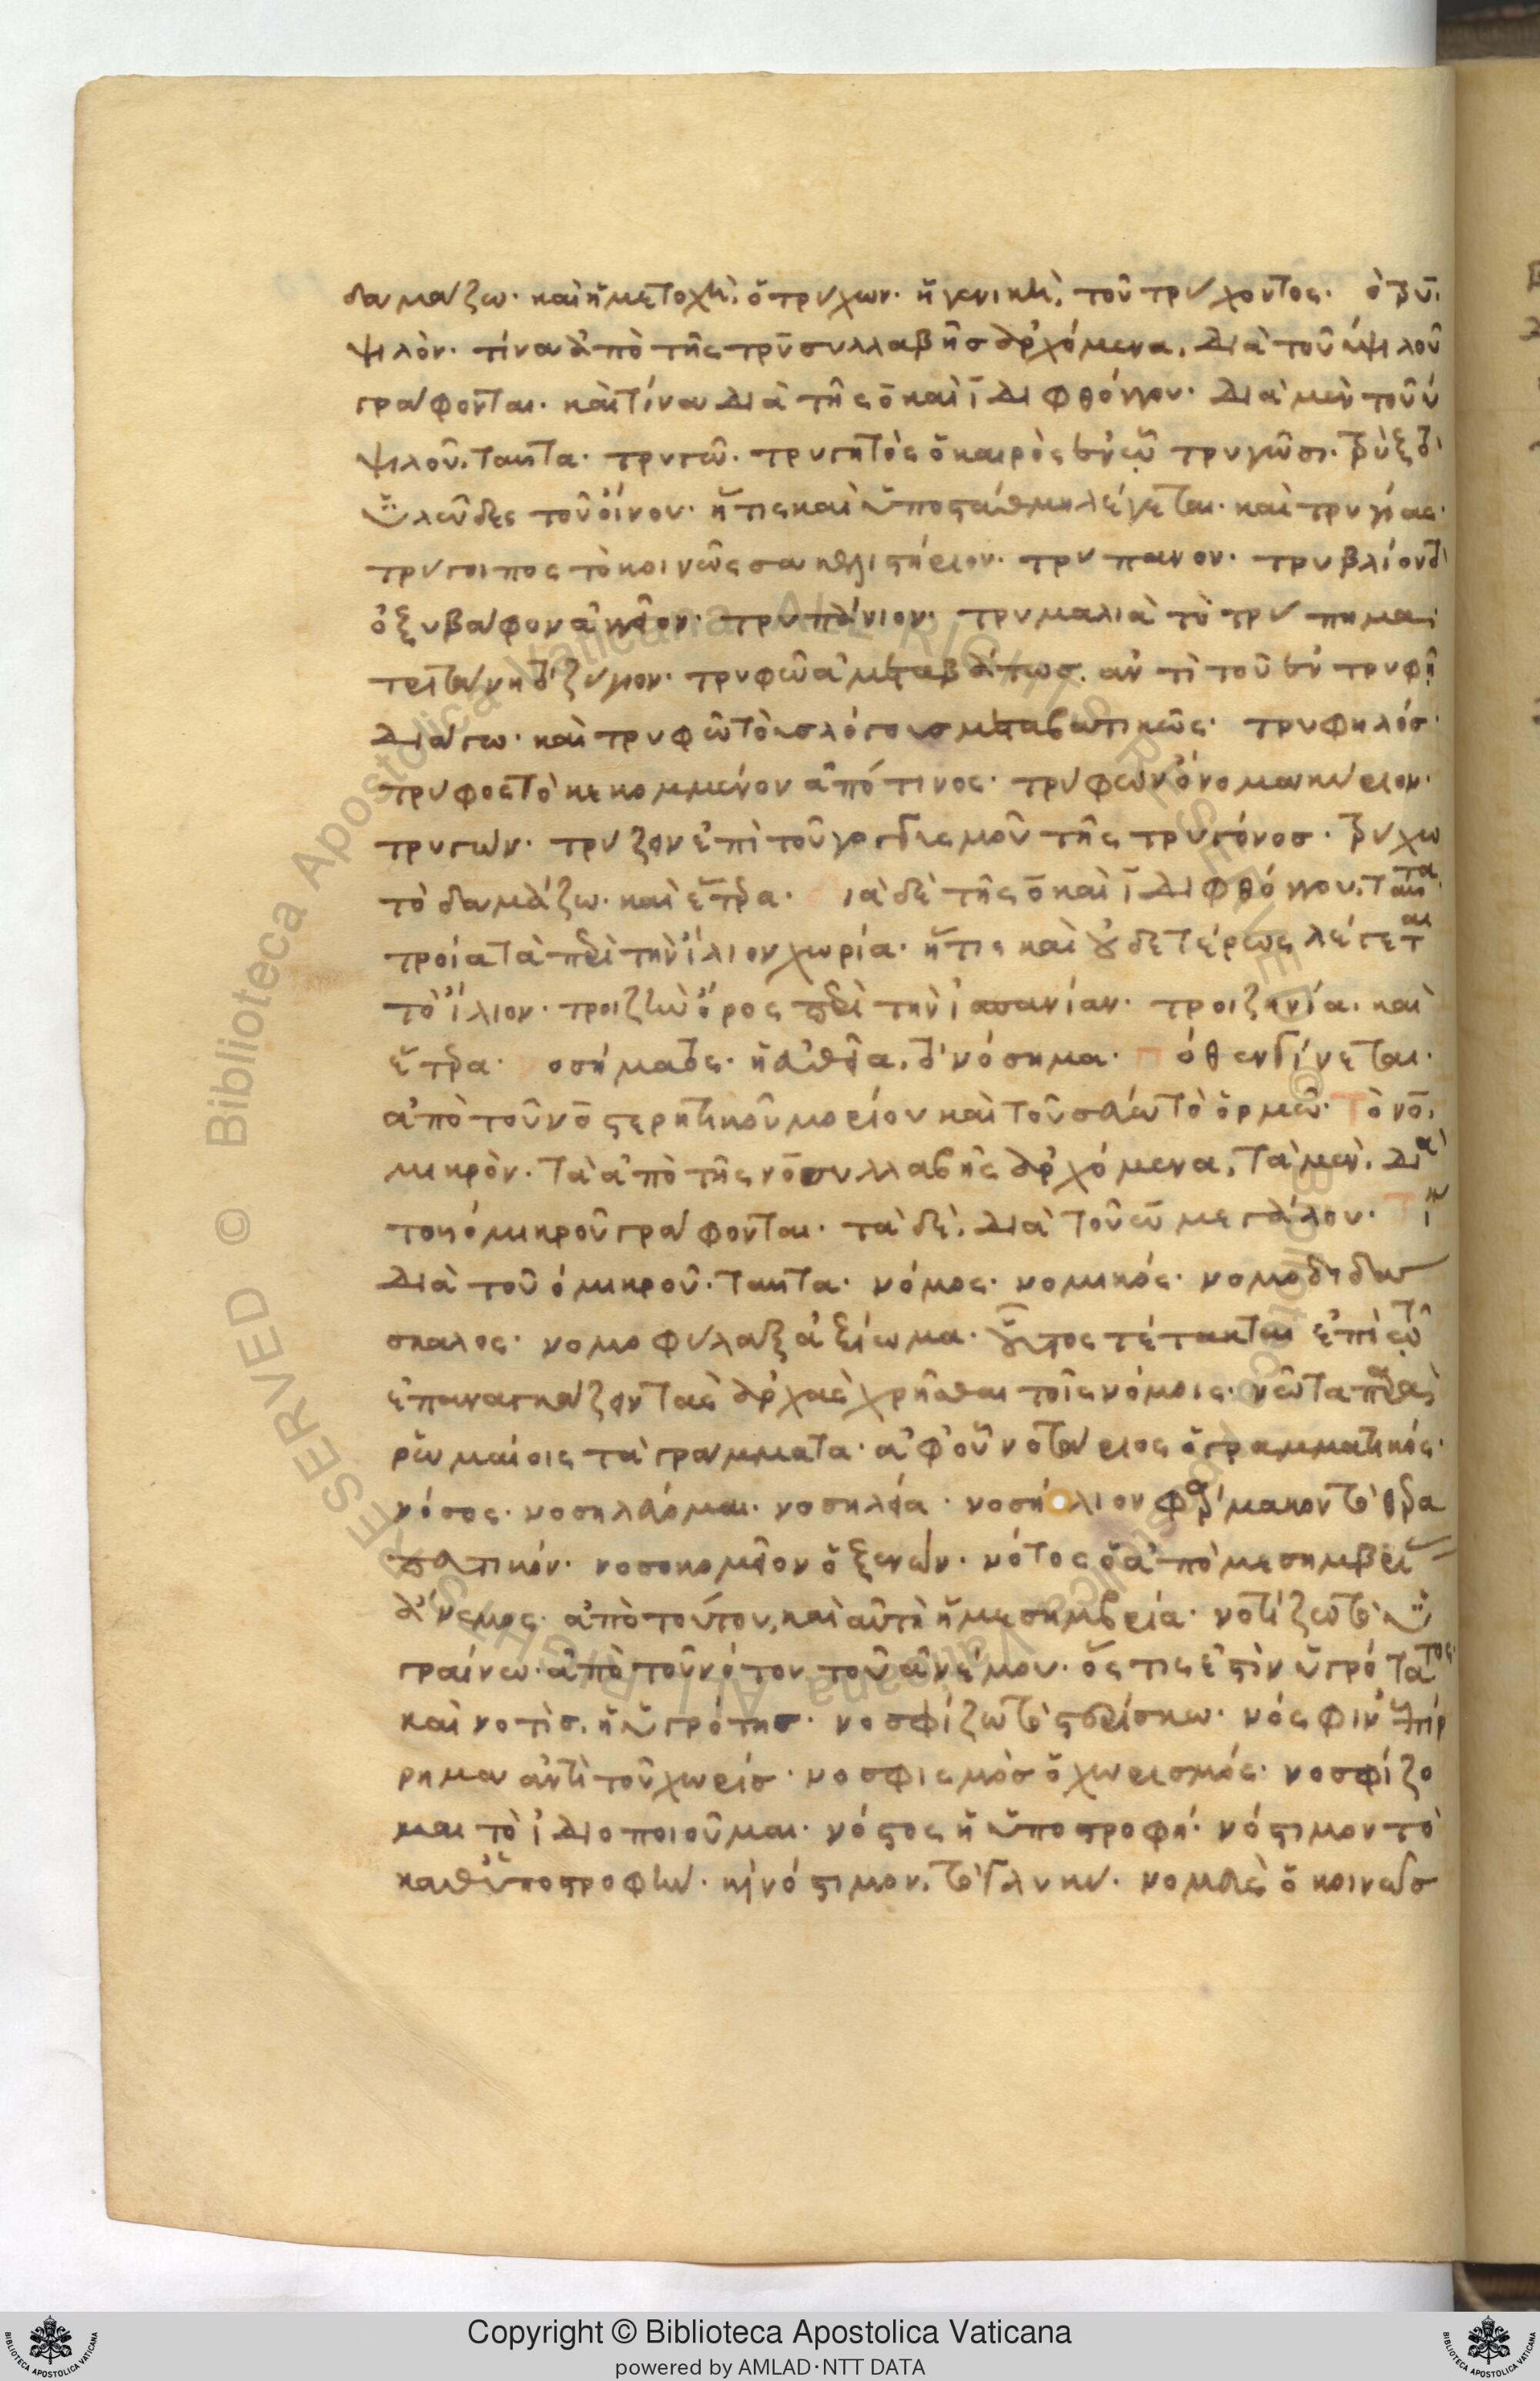 δαμάζω. καὶ ἡ μετοχὴ, ὁ τρύχων. ἡ γενικὴ, τοῦ τρύχοντος. ὁ τρῦ,
ψιλὸν. τίνα ἀπὸ τῆς τρῦ συλλαβῆς ἀρχόμενα, διὰ τοῦ ὑψιλοῦ
γράφονται. καὶ τίνα διὰ τῆς ο καὶ ι διφθόγγου. διὰ μὲν τοῦ ὑ
ψιλοῦ, ταῦτα. τρυγῶ. τρυγητὸς ὁ καιρὸς ἐν ᾧ τρυγῶσι. τρὺξ
τοῦ οἴνου. ἥτις καὶ ὑποστάθμη λέγεται. καὶ τρυγίας.
τρύγοιπος τὸ κοινῶς σακελλιστήριον. τρύπανον. τρυβλίον τὸ
ὀξυβάφον ἀγγεῖον. τρυπάνιον. τρυμαλιὰ τὸ τρύπημα.
τρυτάνη τὸ ζύγιον. τρυφῶ ἀμεταβάτως. ἀντὶ τοῦ ἐν τρυφῇ
διάγω. καὶ τρυφῶ τοῖς λόγοις μεταβατικῶς. τρυφηλός.
τρύφος τὸ κεκομμένον ἀπό τινος. τρύφων ὄνομα κύριον.
τρυγών. τρύζειν ἐπὶ τοῦ γογγυσμοῦ τῆς τρυγόνος. τρύχω
τὸ δαμάζω. καὶ ἕτερα. ιὰ δὲ τῆς ο καὶ ι διφθόγγου, ταῦτα.
τροία τὰ περὶ τὴν ἴλιον χωρία. ἥτις καὶ οὐδετέρως λέγεται
τὸ ἴλιον. τροιζὴν ὄρος περὶ τὴν ἱσπανίαν. τροιζηνία. καὶ
ἕτερα. οσήματος. ἡ εὐθεῖα, τὸ νόσημα. πόθεν γίνεται.
ἀπὸ τοῦ νο στερητικοῦ μορίου καὶ τοῦ σεύω τὸ ὁρμῶ. Τὸ νο,
μικρὸν. τὰ ἀπὸ τῆς νο συλλαβῆς ἀρχόμενα, τὰ μὲν, διὰ
τοῦ ὀμικροῦ γράφονται. τὰ δὲ, διὰ τοῦ ω μεγάλου. Τίνα
διὰ τοῦ ὀμικροῦ. ταῦτα. νόμος. νομικός. νομοδιδά
σκαλος. νομοφύλαξ ἀξίωμα. οὗτος τέτακται ἐπὶ τῷ
ἐπαναγκάζειν τὰς ἀρχὰς χρῆσθαι τοῖς νόμοις. νῶτα παρὰ
ῥωμαίοις τὰ γράμματα. ἀφ' οὗ νοτάριος ὁ γραμματικός.
νόσος. νοσηλεύομαι. νοσηλεία. νοσήλιον φάρμακον τὸ θερα
πευτικόν. νοσοκομεῖον ὁ ξενών. νότος ὁ ἀπὸ μεσημβρί
ἄνεμος. ἀπὸ τούτου, καὶ αὐτὴ ἡ μεσημβρία. νοτίζω τὸ ὑ
γραίνω. ἀπὸ τοῦ νότου τοῦ ἀνέμου. ὅς τις ἐστὶν ὑγρότατος.
καὶ νοτὶς, ἡ ὑγρότης. νοσφίζω τὸ στερίσκω. νόσφιν ἐπίρ
ρημα ἀντὶ τοῦ χωρίς. νοσφισμὸς ὁ χωρισμός. νοσφίζο
μαι τὸ ἰδιοποιοῦμαι. νόστος ἡ ὑποστροφή. νόστιμον τὸ
καθ' ὑποστροφὴν. καὶ νόστιμον, τὸ γλυκύ. νομεὺς ὁ κοινῶς
Copyright © Biblioteca Apostolica Vaticana
powered by AMLAD·NTT DATA